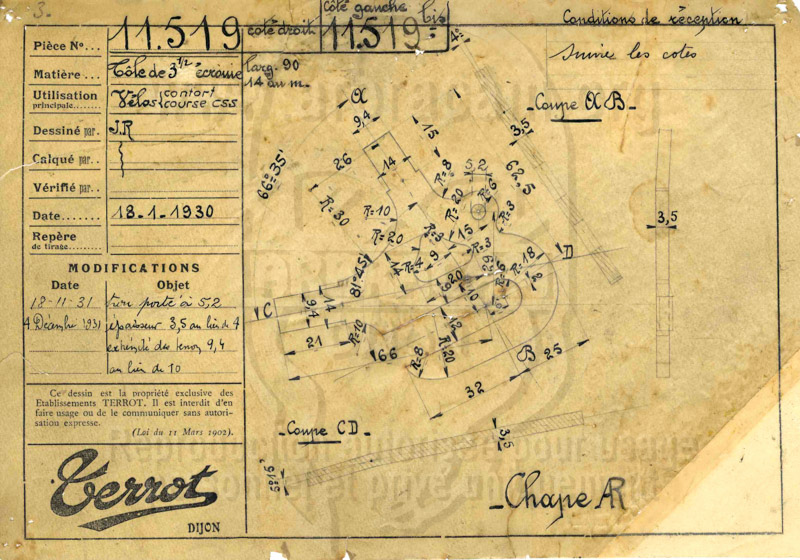 3.
Pièce No...
11.519
côté droit
Côté gauche
bis
11.519
Matière...
Tôle de 3 1/2 écrouie
larg. 90
14 au m.
Utilisation
principale.....
Vélos {confort
course CSS
Dessiné par.
J.R
Calqué par..
Vérifié par..
Date.......
18-1-1930
Repère
de tirage......
MODIFICATIONS
Date
Objet
18-11-31
porté à 5,2
4 Décembre 1931
épaisseur 3,5 au lieu de 4
extrémité des tenons 9,4
au lieu de 10
Ce dessin est la propriété exclusive des
Etablissements TERROT. Il est interdit d'en
faire usage ou de le communiquer sans autori-
sation expresse.
(Loi du 11 Mars 1902).
Terrot
DIJON
Conditions de réception
Suivre les cotes
Coupe AB
4°
3,5
62,5
3,5
A
9,4
15
14
26
66°35'
R=30
R=10
R=20
R=8
R=20
5,2
R=6
R=3
15
R=3
R=3
R=4
9
14
81°45'
R=18
D
2
20
10
12
C
9,4
14
21
R=10
66
R=8
R=20
B
25
32
Coupe CD
3,5
5°16'
Chape AR